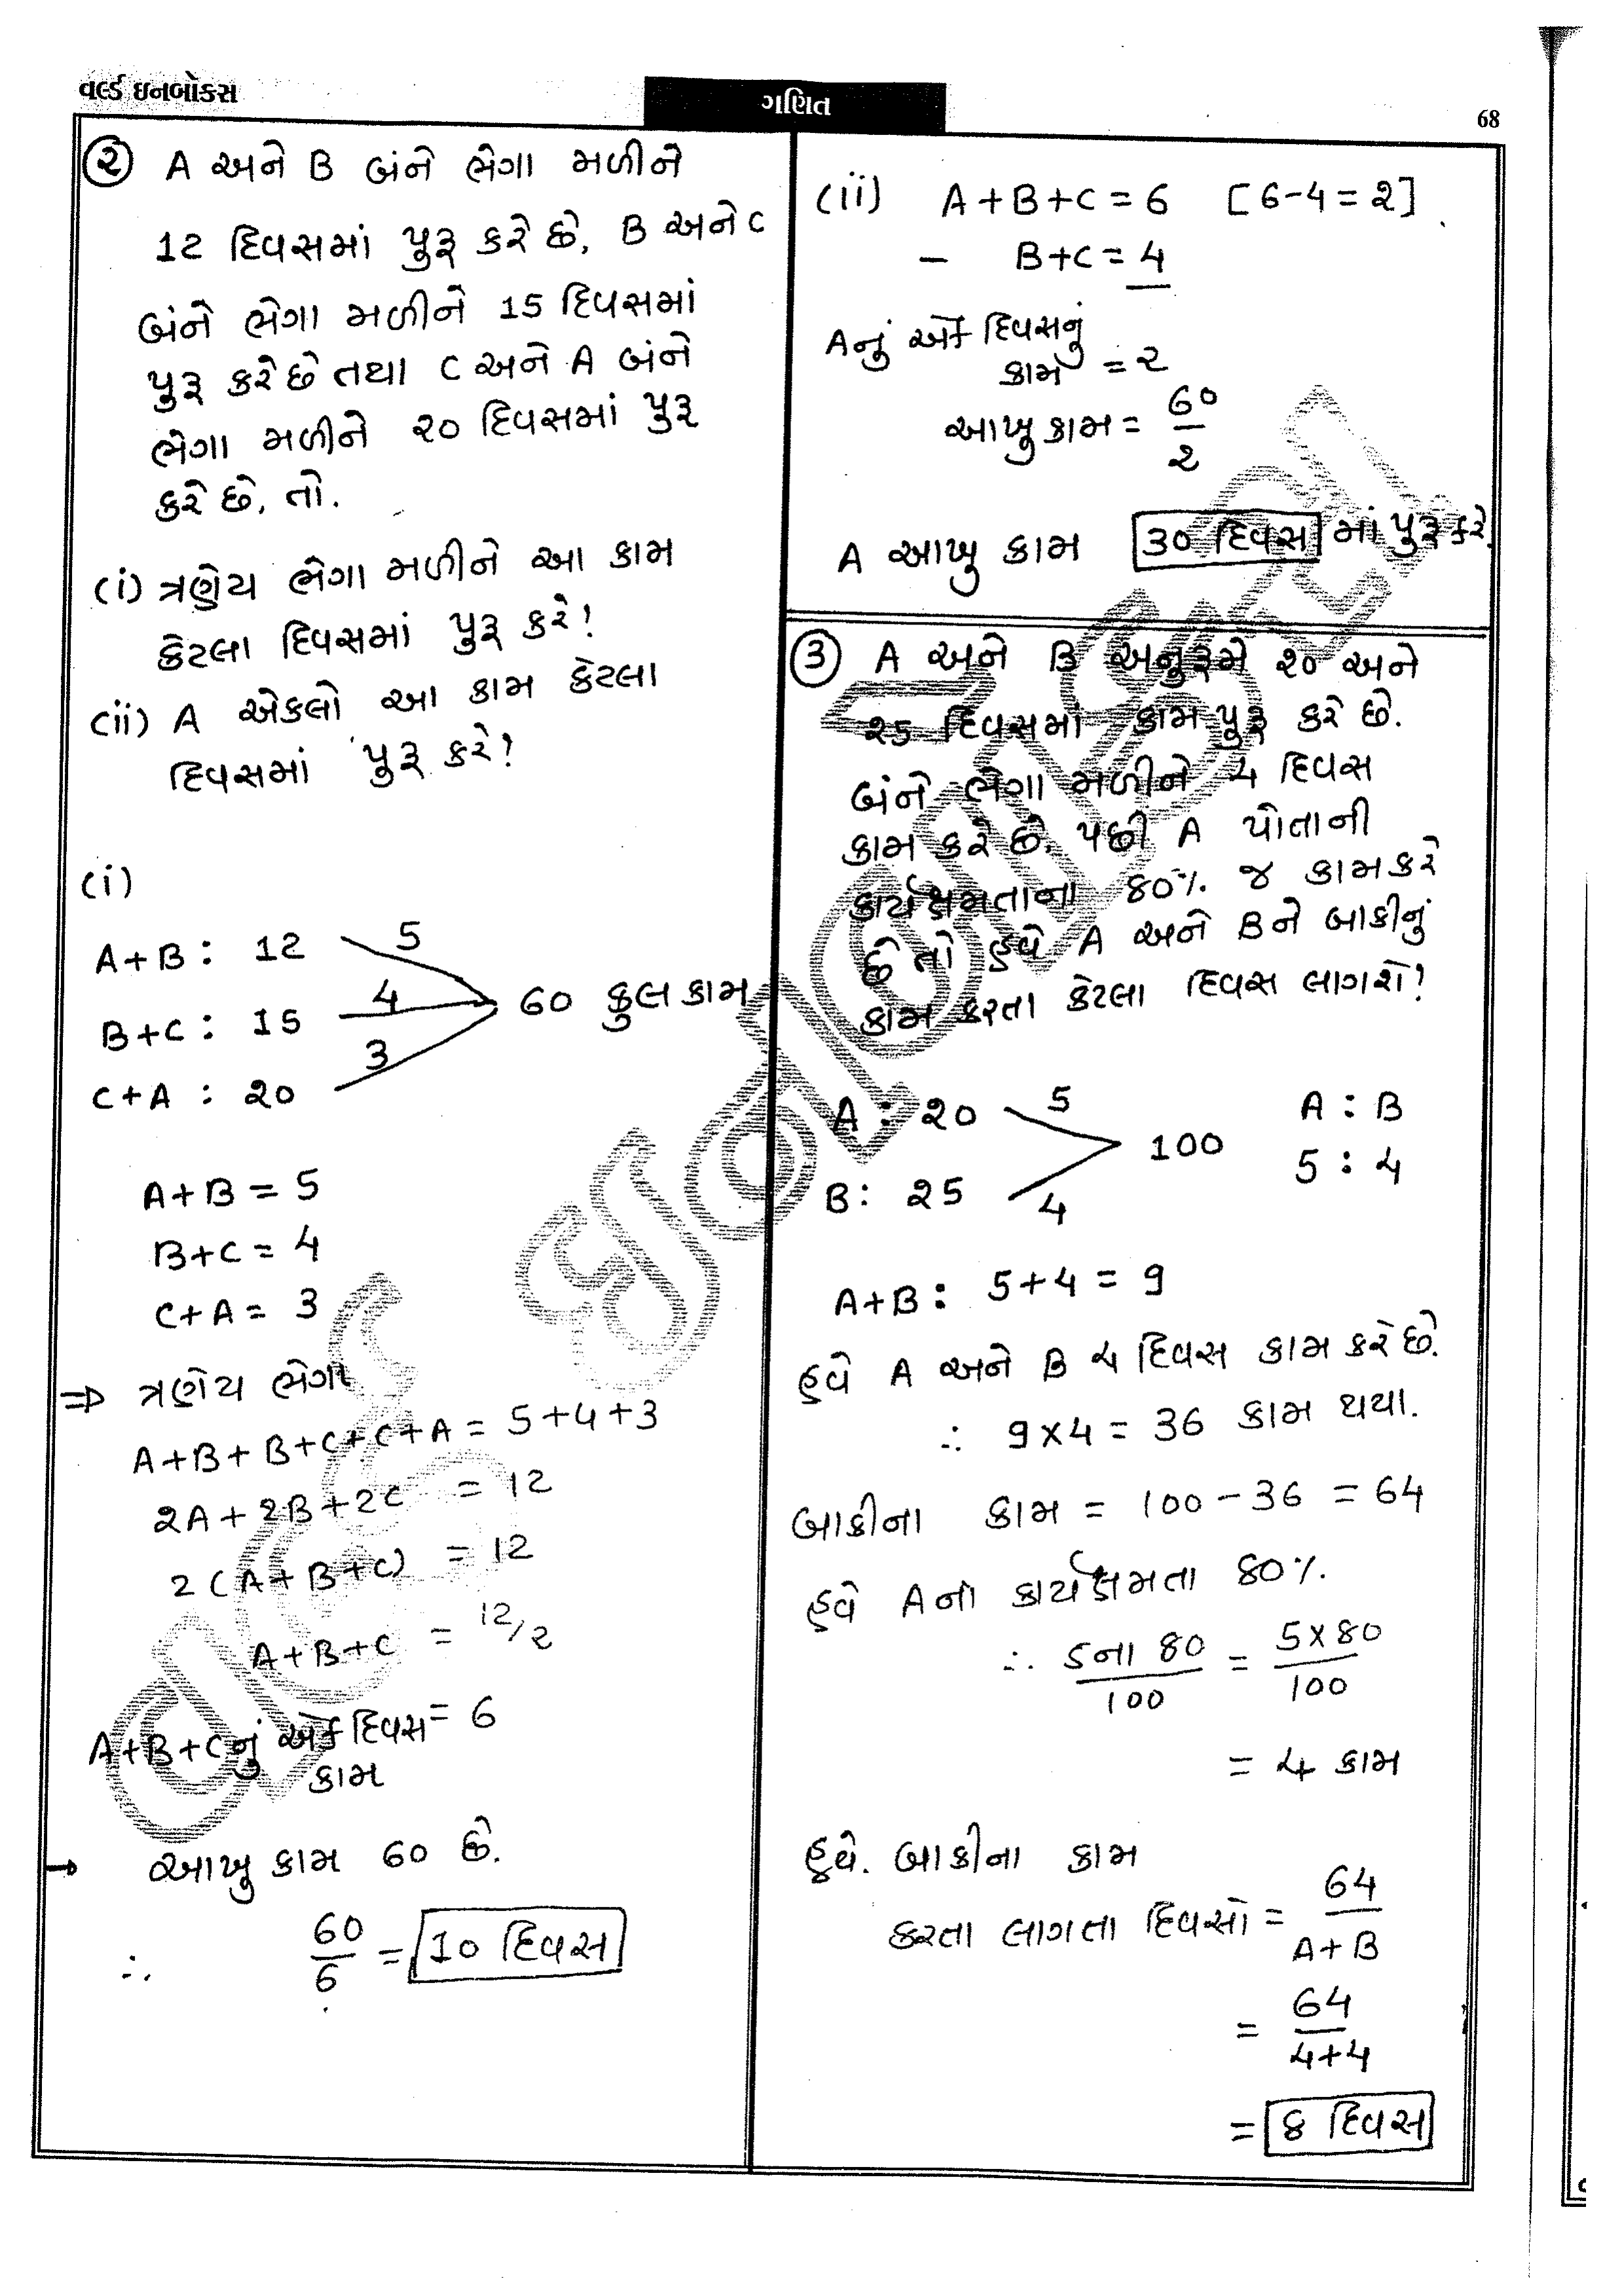 વર્લ્ડ ઇનબોકસ
ગણિત
68
(૨) A અને B બંને ભેગા મળીને
12 દિવસમાં પુરૂ કરે છે, B અને C
બંને ભેગા મળીને 15 દિવસમાં
પુરૂ કરે છે તથા C અને A બંને
ભેગા મળીને ૨૦ દિવસમાં પુરૂ
કરે છે, તો.
(i) ત્રણેય ભેગા મળીને આ કામ
કેટલા દિવસમાં પુરૂ કરે?
(ii) A એકલો આ કામ કેટલા
દિવસમાં પુરૂ કરે?
(i)
A+B : 12 5
B+C : 15 4 60 કુલ કામ
C+A : ૨૦ 3
A+B = 5
B+C = 4
C+A = 3
⇒ ત્રણેય ભેગા
A+B+B+C+C+A = 5+4+3
2A+2B+2C = 12
2(A+B+C) = 12
A+B+C = 12/2
A+B+Cનું એક દિવસ = 6
કામ
→ આખુ કામ 60 છે.
∴ 60/6 = 10 દિવસ
(ii) A+B+C = 6 [6-4=2]
- B+C = 4
Aનું એક દિવસનું
કામ = ૨
આખુ કામ = 60/2
A આખુ કામ 30 દિવસ માં પુરૂ કરે.
(3) A અને B અનુક્રમે ૨૦ અને
૨5 દિવસમાં કામ પુરૂ કરે છે.
બંને ભેગા મળીને 4 દિવસ
કામ કરે છે. પછી A પોતાની
કાર્યક્ષમતાના 80% જ કામ કરે
છે તો હવે A અને B ને બાકીનું
કામ કરતા કેટલા દિવસ લાગશે?
A : ૨૦ 5 A : B
100
B : 25 4 5 : 4
A+B : 5+4 = 9
હવે A અને B 4 દિવસ કામ કરે છે.
∴ 9×4 = 36 કામ થયા.
બાકીના કામ = 100-36 = 64
હવે Aની કાર્યક્ષમતા 80%.
∴ 5ના 80/100 = 5×80/100
= 4 કામ
હવે. બાકીના કામ
કરતા લાગતા દિવસો = 64/A+B
= 64/4+4
= 8 દિવસ
વર્લ્ડ ઇનબોકસ